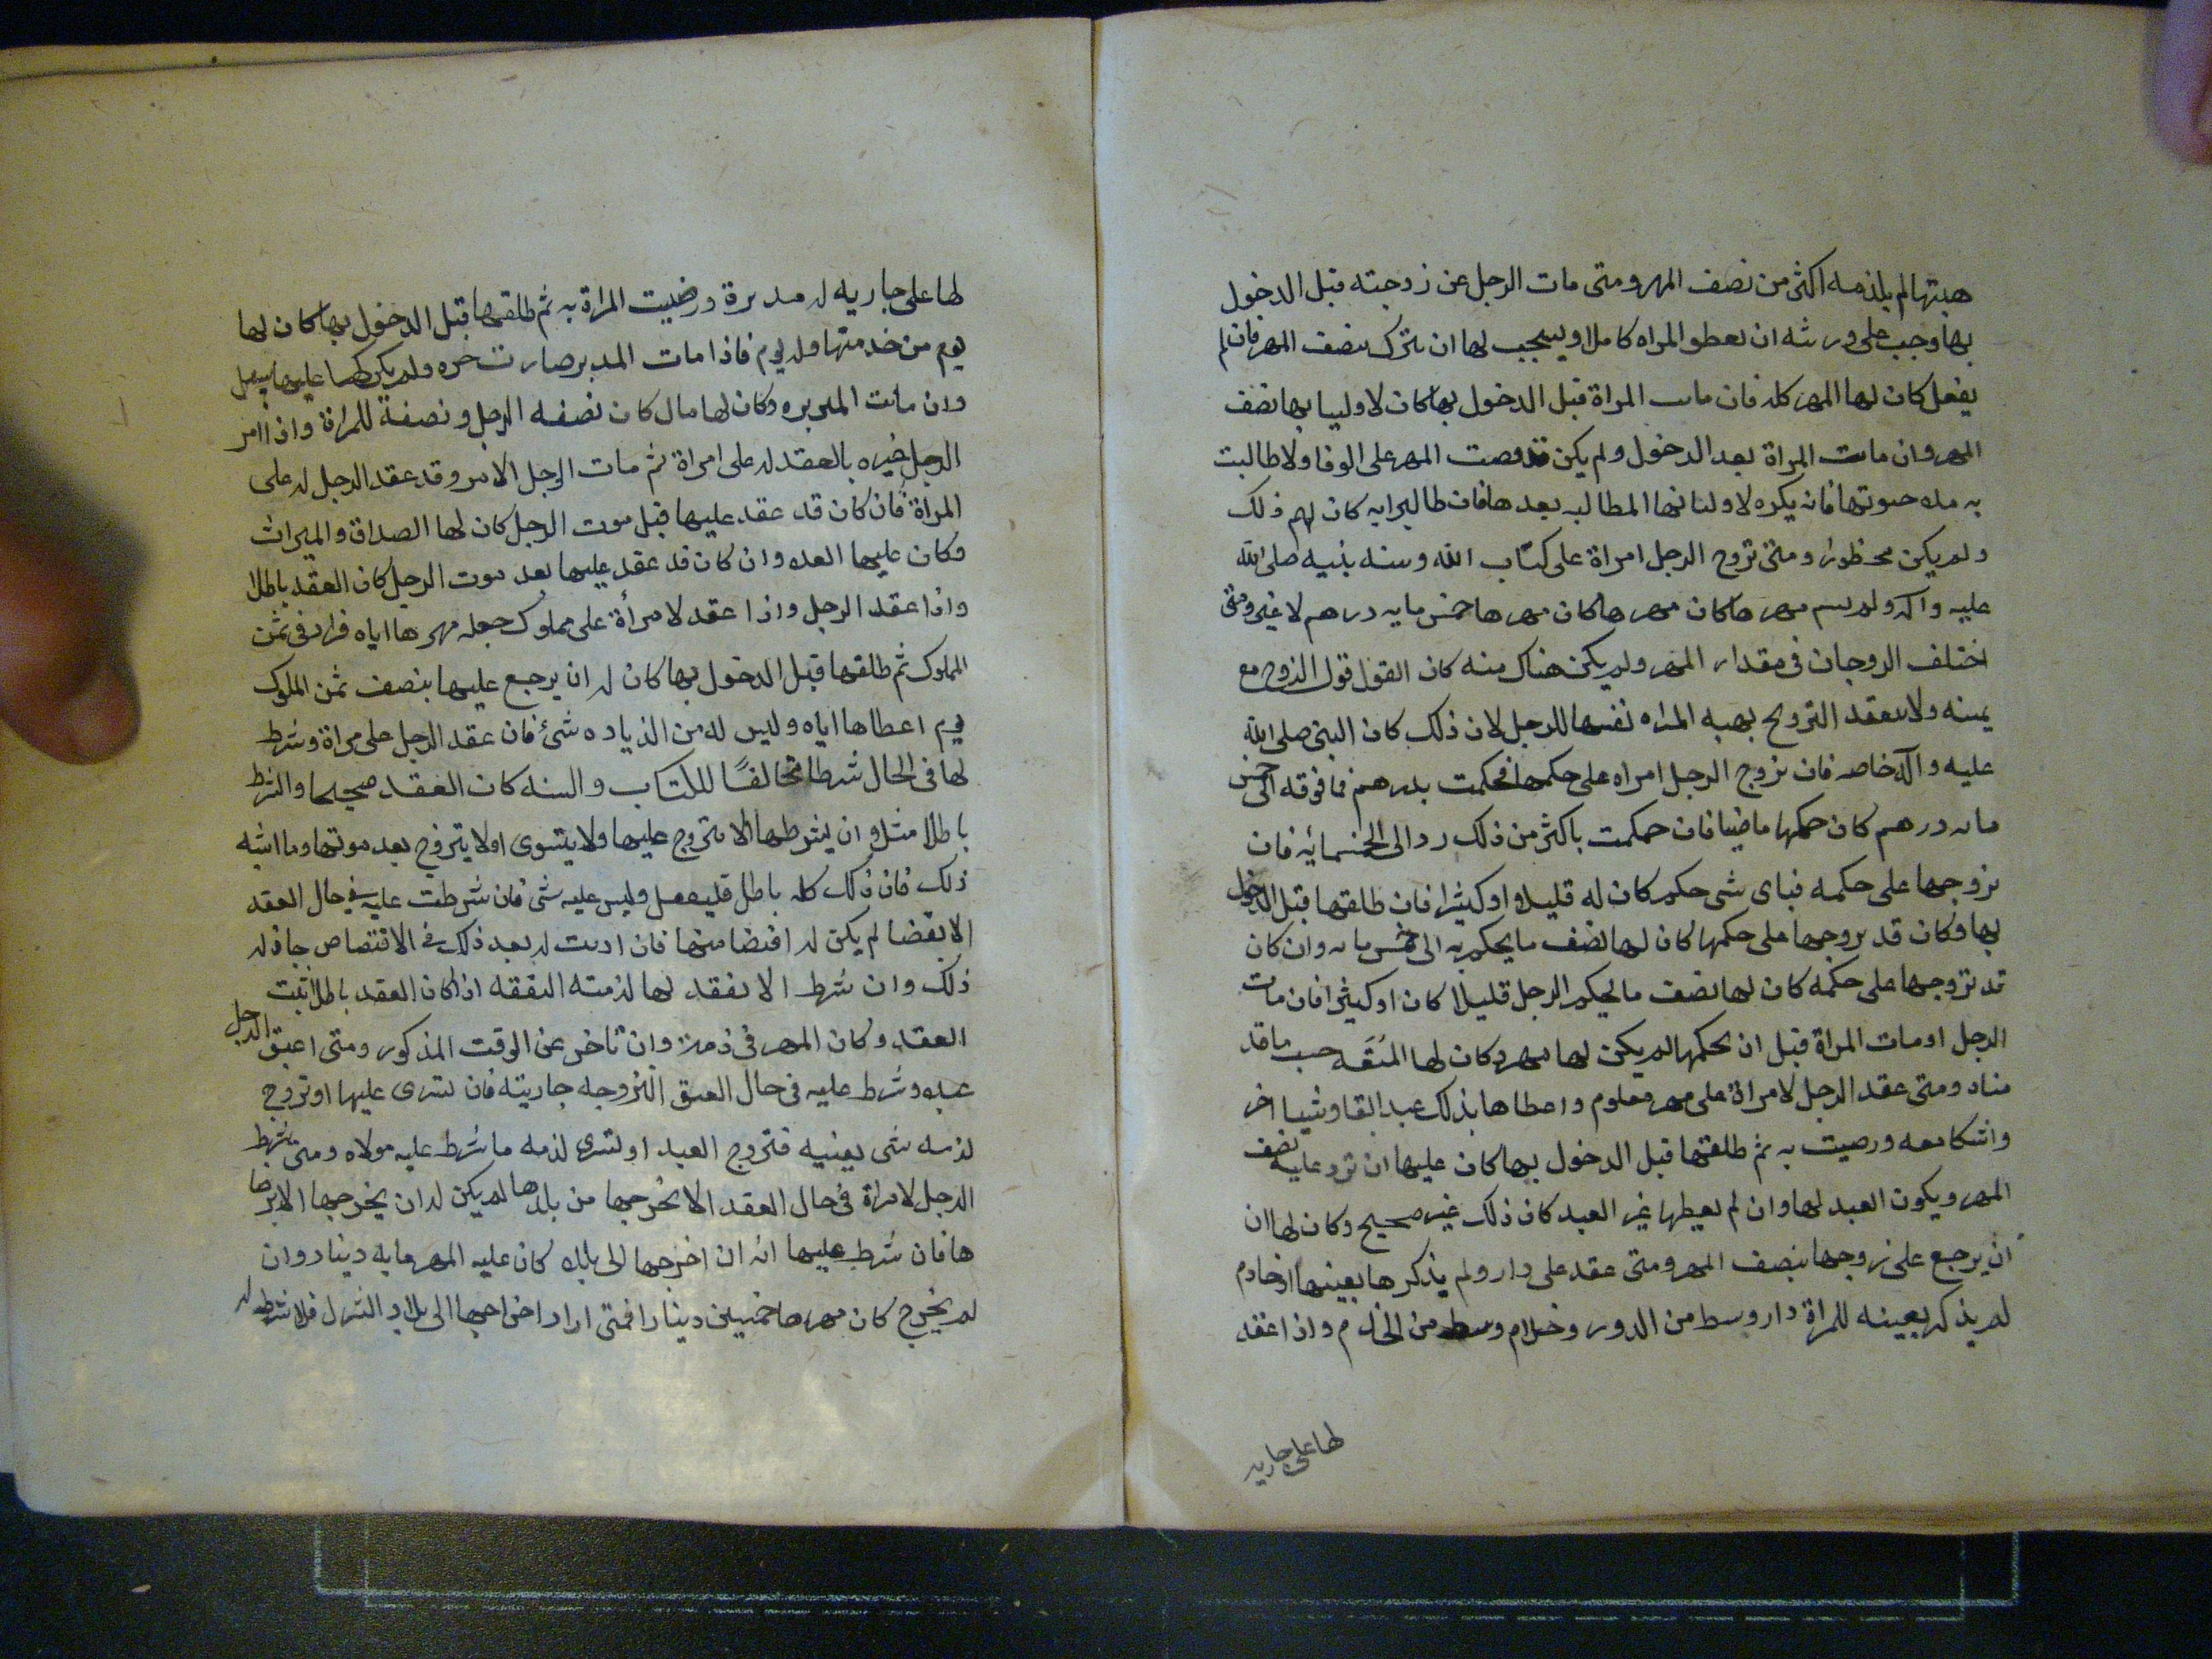 هبتها لم يلزمه اكثر من نصف المهر ومتى مات الرجل عن زوجته قبل الدخول
بها وجب على ورثته ان يعطو المراه كاملا ويستحب لها ان تترك نصف المهر فان لم
يفعل كان لها المهر كله فان مات المراة قبل الدخول بها كان لاوليا بها نصف
المهر وان ماتت المراة بعد الدخول ولم يكن قد قبضت المهر على الوفا ولا طالبت
به مده حيوتها فانه يكره لاوليائها المطالبه بعدها فان طالبوا به كان لهم ذلك
ولم يكن محظورا ومتى تزوج الرجل امراة على كتاب الله وسنه نبيه صلى الله
عليه واله ولم يسم مهرها كان مهرها كان مهرها خمس مايه درهم لا غير ومتى
اختلف الزوجان في مقدار المهر ولم يكن هناك بينه كان القول قول الزوج مع
يمينه ولا ينعقد التزويج بهبه المراه نفسها للرجل لان ذلك كان النبي صلى الله
عليه وآله خاصه فان تزوج الرجل امراه على حكمها فحكمت بدرهم فما فوقه الى خمس
مايه درهم كان حكمها ماضيا فان حكمت باكثر من ذلك رد الى الخمسمائة فان
تزوجها على حكمه فباى شى حكم كان له قليلا او كثيرا فان طلقها قبل الدخول
بها وكان قد تزوجها على حكمها كان لها نصف ما يحكم به الى خمس مايه وان كان
قد تزوجها على حكمه كان لها نصف ما يحكم الرجل قليلا كان او كثيرا فان مات
الرجل او مات المراة قبل ان يحكمها لم يكن لها مهر وكان لها المتعه حسب ما قد
مناه ومتى عقد الرجل لامراة على مهر معلوم واعطاها بذلك عبد ابقا وشيا اخر
معه ورضيت به ثم طلقها قبل الدخول بها كان عليها ان ترد عليه نصف
المهر ويكون العبد لها وان لم يعطها غير العبد كان ذلك غير صحيح وكان لها ان
ان يرجع على زوجها بنصف المهر ومتى عقد على دار ولم يذكرها بعينها او خادم
لم يذكر بعينه للمراة دار وسط من الدور وخادم وسط من الخدم واذا عقد
لها على جاريه
لها على جاريه له مدبرة ورضيت المراة به ثم طلقها قبل الدخول بها كان لها
يوم من خدمتها وله يوم فاذا مات المدبر صارت حره ولم يكن لها عليها سبيل
وان ماتت المدبره وكان لها مال كان نصفه للرجل ونصفه للمراة واذا امر
الرجل غيره بالعقد له على امراة ثم مات الرجل الامر وقد عقد الرجل له على
المراة فان كان قد عقد عليها قبل موت الرجل كان لها الصداق والميراث
وكان عليها العده وان كان قد عقد عليها بعد موت الرجل كان العقد باطلا
واذا عقد الرجل واذا عقد لامرأة على مملوك جعله مهرها اياه فزاد فى ثمن
المملوك ثم طلقها قبل الدخول بها كان له ان يرجع عليها بنصف ثمن الملوك
يوم اعطاها اياه وليس له من الزياده شئ فان عقد الرجل على مراة وشرط
لها فى الحال شرطا مخالفًا للكتاب والسنه كان العقد صحيحا والشرط
باطلا مثلا وان يشرط لها الا يتزوج عليها ولا يتسرى اولا يتزوج بعد موتها وما اشبه
ذلك فان ذلك كله باطل فليفعل وليس عليه شى فان شرطت عليه في حال العقد
الا يفتضها لم يكن له افتضاضها فان اذنت له بعد ذلك في الاقتصاص جاز له
ذلك وان شرط الا نفقه لها لزمته النفقه اذا كان العقد باطلا ثبت
العقد وكان المهر فى ذمته وان تاخر عن الوقت المذكور ومتى اعتق الرجل
عبده وشرط عليه فى حال العتق ان يزوجه جاريته فان تسرى عليها او تزوج
لزمه شى بعينه فتزوج العبد او تسرى لزمه ما شرط عليه مولاه ومتى شرط
الرجل لامراة فى حال العقد الا يخرجها من بلدها لم يكن له ان يخرجها الا برضا
ها فان شرط عليها انه ان اخرجها الى بلده كان عليه المهر مايه دينار وان
لم يخرج كان مهرها خمسين دينارا فمتى اراد اخراجها الى بلاد الشرك فلا شرط له